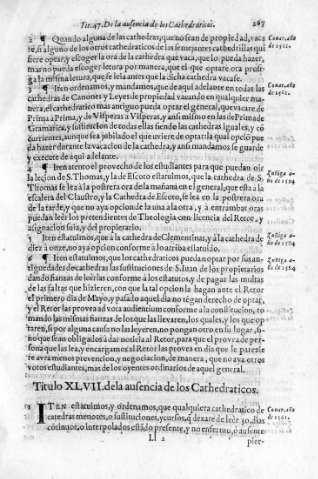 Tit. 47. De la ausencia de los Cathedraticos. 267
2 ¶ Quando alguna de las cathedras, que no sean de propiedad, vaca
re, si alguno de los otros cathedraticos de las semejantes cathedrillas qui
siere optar, y escoger la ora de la cathedra que vaca, que lo pueda hazer,
la misma letura, que se leia antes que la dicha cathedra vacasse.
3 ¶ Iten ordenamos, y mandamos, que de aqui adelante en todas las
cathedras de Canones y Leyes de propiedad vacando en qualquier ma-
nera, el cathedratico mas antiguo pueda optar el general, que vacare, de
Prima a Prima, y de Visperas a Visperas, y ansi mismo en las de Prima de
Gramatica, y sustitucion de todas ellas siendo las cathedras iguales, y có
currientes, aunque sea jubilado el que quiere optar la qual opcion pue
da hazer durante la vacacion de la cathedra, y ansi mandamos se guarde
y execute de aqui adelante.
4 ¶ Iten atento el provecho de los estudiantes para que puedan oir
la leçion de S. Thomas, y la de Escoto estatuimos, que la cathedra de S.
Thomas se lea à la postrera ora de la mañana en el general, que esta à la
escalera del Claustro, y la Cathedra de Escoto, se lea en la postrera ora
de la tarde, y que no aya opcion de la una à la otra, y à entrambas oras
puedan leer los pretendientes de Theologia con licencia del Retor, y
asignacion suia, y del propietario.
5 Iten estatuimos, que à la cathedra de Clementinas, y à la cathedra de
diez à onze, no aya opcion conforme lo arriba estatuido.
6 ¶ Iten estatuimos, que los cathedraticos puedan optar por sus an-
tiguedades de cathedras las sustituciones de S. Iuan de los propietarios
dando fianzas de leerlas conforme à los estatutos, y de pagar las multas
de las faltas que hizieren, con que la tal opcion la hagan ante el Retor
el primero dia de Mayo, y pasado aquel dia no tengan derecho de optar,
y el Retor las provea ad vota audientium conforme a la constitucion, to
mando las mismas fianzas de los que las llevaren, los quales, y los que op
taren, si por alguna causa no las leyeren, no pongan otro en su lugar, si-
no que sean obligados à dar noticia al Retor, para que el provea de per-
sona que las lea, y encargamos al Retor las provea en dia que le pareſie
re avra menos prevencion, y negociacion, de manera, que no aya otros
votos estudiantes, mas de los oyentes ordinarios de aquel general.
Titulo XLVII. de la ausencia de los Cathedraticos.
ITEN estatuimos, y ordenamos, que qualquiera cathedratico de
catedras menores, o sustituciones, y cursos, q̃ dexare de leer 30. dias
còtinuos, o interpolados estãdo presente, y no enfermo, o ausente
Ll 2
pier-